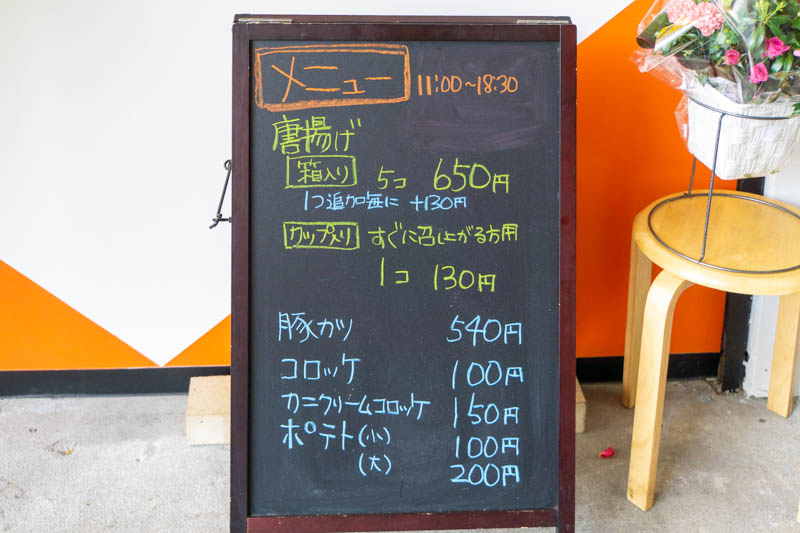 メニュー 11:00~18:30
唐揚げ
箱入り 5コ 650円
1つ追加毎に +130円
カップ入り すぐに召し上がる方用
1コ 130円
豚カツ 540円
コロッケ 100円
カニクリームコロッケ 150円
ポテト(小) 100円
(大) 200円